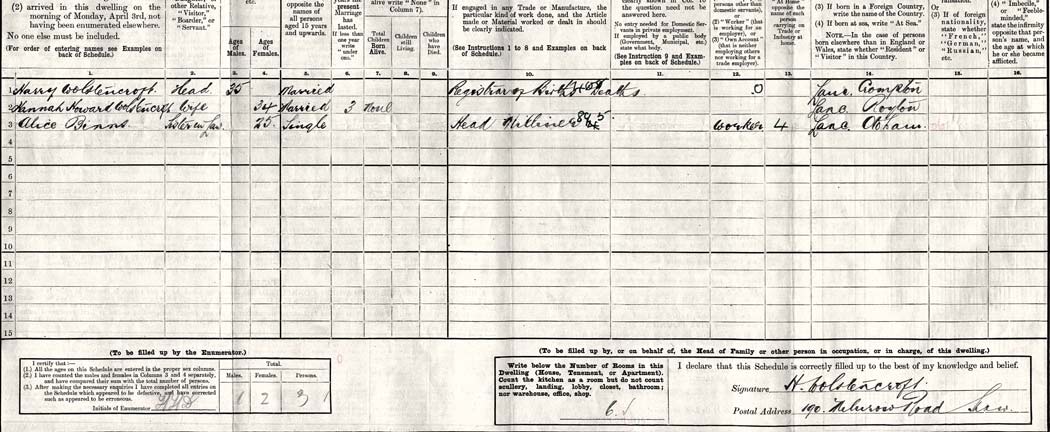 (2) arrived in this dwelling on the morning of Monday, April 3rd, not having been enumerated elsewhere.
No one else must be included.
(For order of entering names see Examples on back of Schedule.)
other Relative, "Visitor," "Boarder," or "Servant."
etc.
Ages of Males.
Ages of Females.
opposite the names of all persons aged 15 years and upwards.
present Marriage has lasted. If less than one year write "under one."
alive write "None" in Column 7).
Total Children Born Alive.
Children still Living.
Children who have Died.
If engaged in any Trade or Manufacture, the particular kind of work done, and the Article made or Material worked or dealt in should be clearly indicated.
(See Instructions 1 to 8 and Examples on back of Schedule.)
question need not be answered here.
No entry needed for Domestic Servants in private employment.
If employed by a public body (Government, Municipal, etc.) state what body.
(See Instruction 9 and Examples on back of Schedule.)
persons other than domestic servants), or (2) "Worker" (that is working for an employer), or (3) "Own Account" (that is neither employing others nor working for a trade employer).
opposite the name of each person carrying on Trade or Industry at home.
(3) If born in a Foreign Country, write the name of the Country.
(4) If born at sea, write "At Sea."
NOTE.—In the case of persons born elsewhere than in England or Wales, state whether "Resident" or "Visitor" in this Country.
(3) If of foreign nationality, state whether "French," "German," "Russian," etc.
(4) "Imbecile," or "Feeble-minded," state the infirmity opposite that person's name, and the age at which he or she became afflicted.
1. 2. 3. 4. 5. 6. 7. 8. 9. 10. 11. 12. 13. 14. 15. 16.
1 Harry Wolstencroft Head 35 Married Registrar of Births & Deaths Lanc. Crompton
2 Hannah Howard Wolstencroft Wife 34 Married 3 None Lanc. Royton
3 Alice Binns Sister in Law 25 Single Head Milliner Worker 4 Lanc. Oldham
4
5
6
7
8
9
10
11
12
13
14
15
(To be filled up by the Enumerator.)
I certify that:—
(1.) All the ages on this Schedule are entered in the proper sex columns.
(2.) I have counted the males and females in Columns 3 and 4 separately, and have compared their sum with the total number of persons.
(3.) After making the necessary enquiries I have completed all entries on the Schedule which appeared to be defective, and have corrected such as appeared to be erroneous.
Initials of Enumerator
Total.
Males. Females. Persons.
1 2 3
(To be filled up by, or on behalf of, the Head of Family or other person in occupation, or in charge, of this dwelling.)
Write below the Number of Rooms in this Dwelling (House, Tenement, or Apartment). Count the kitchen as a room but do not count scullery, landing, lobby, closet, bathroom; nor warehouse, office, shop.
6
I declare that this Schedule is correctly filled up to the best of my knowledge and belief.
Signature H. Wolstencroft.
Postal Address 190. Milnrow Road Shaw.